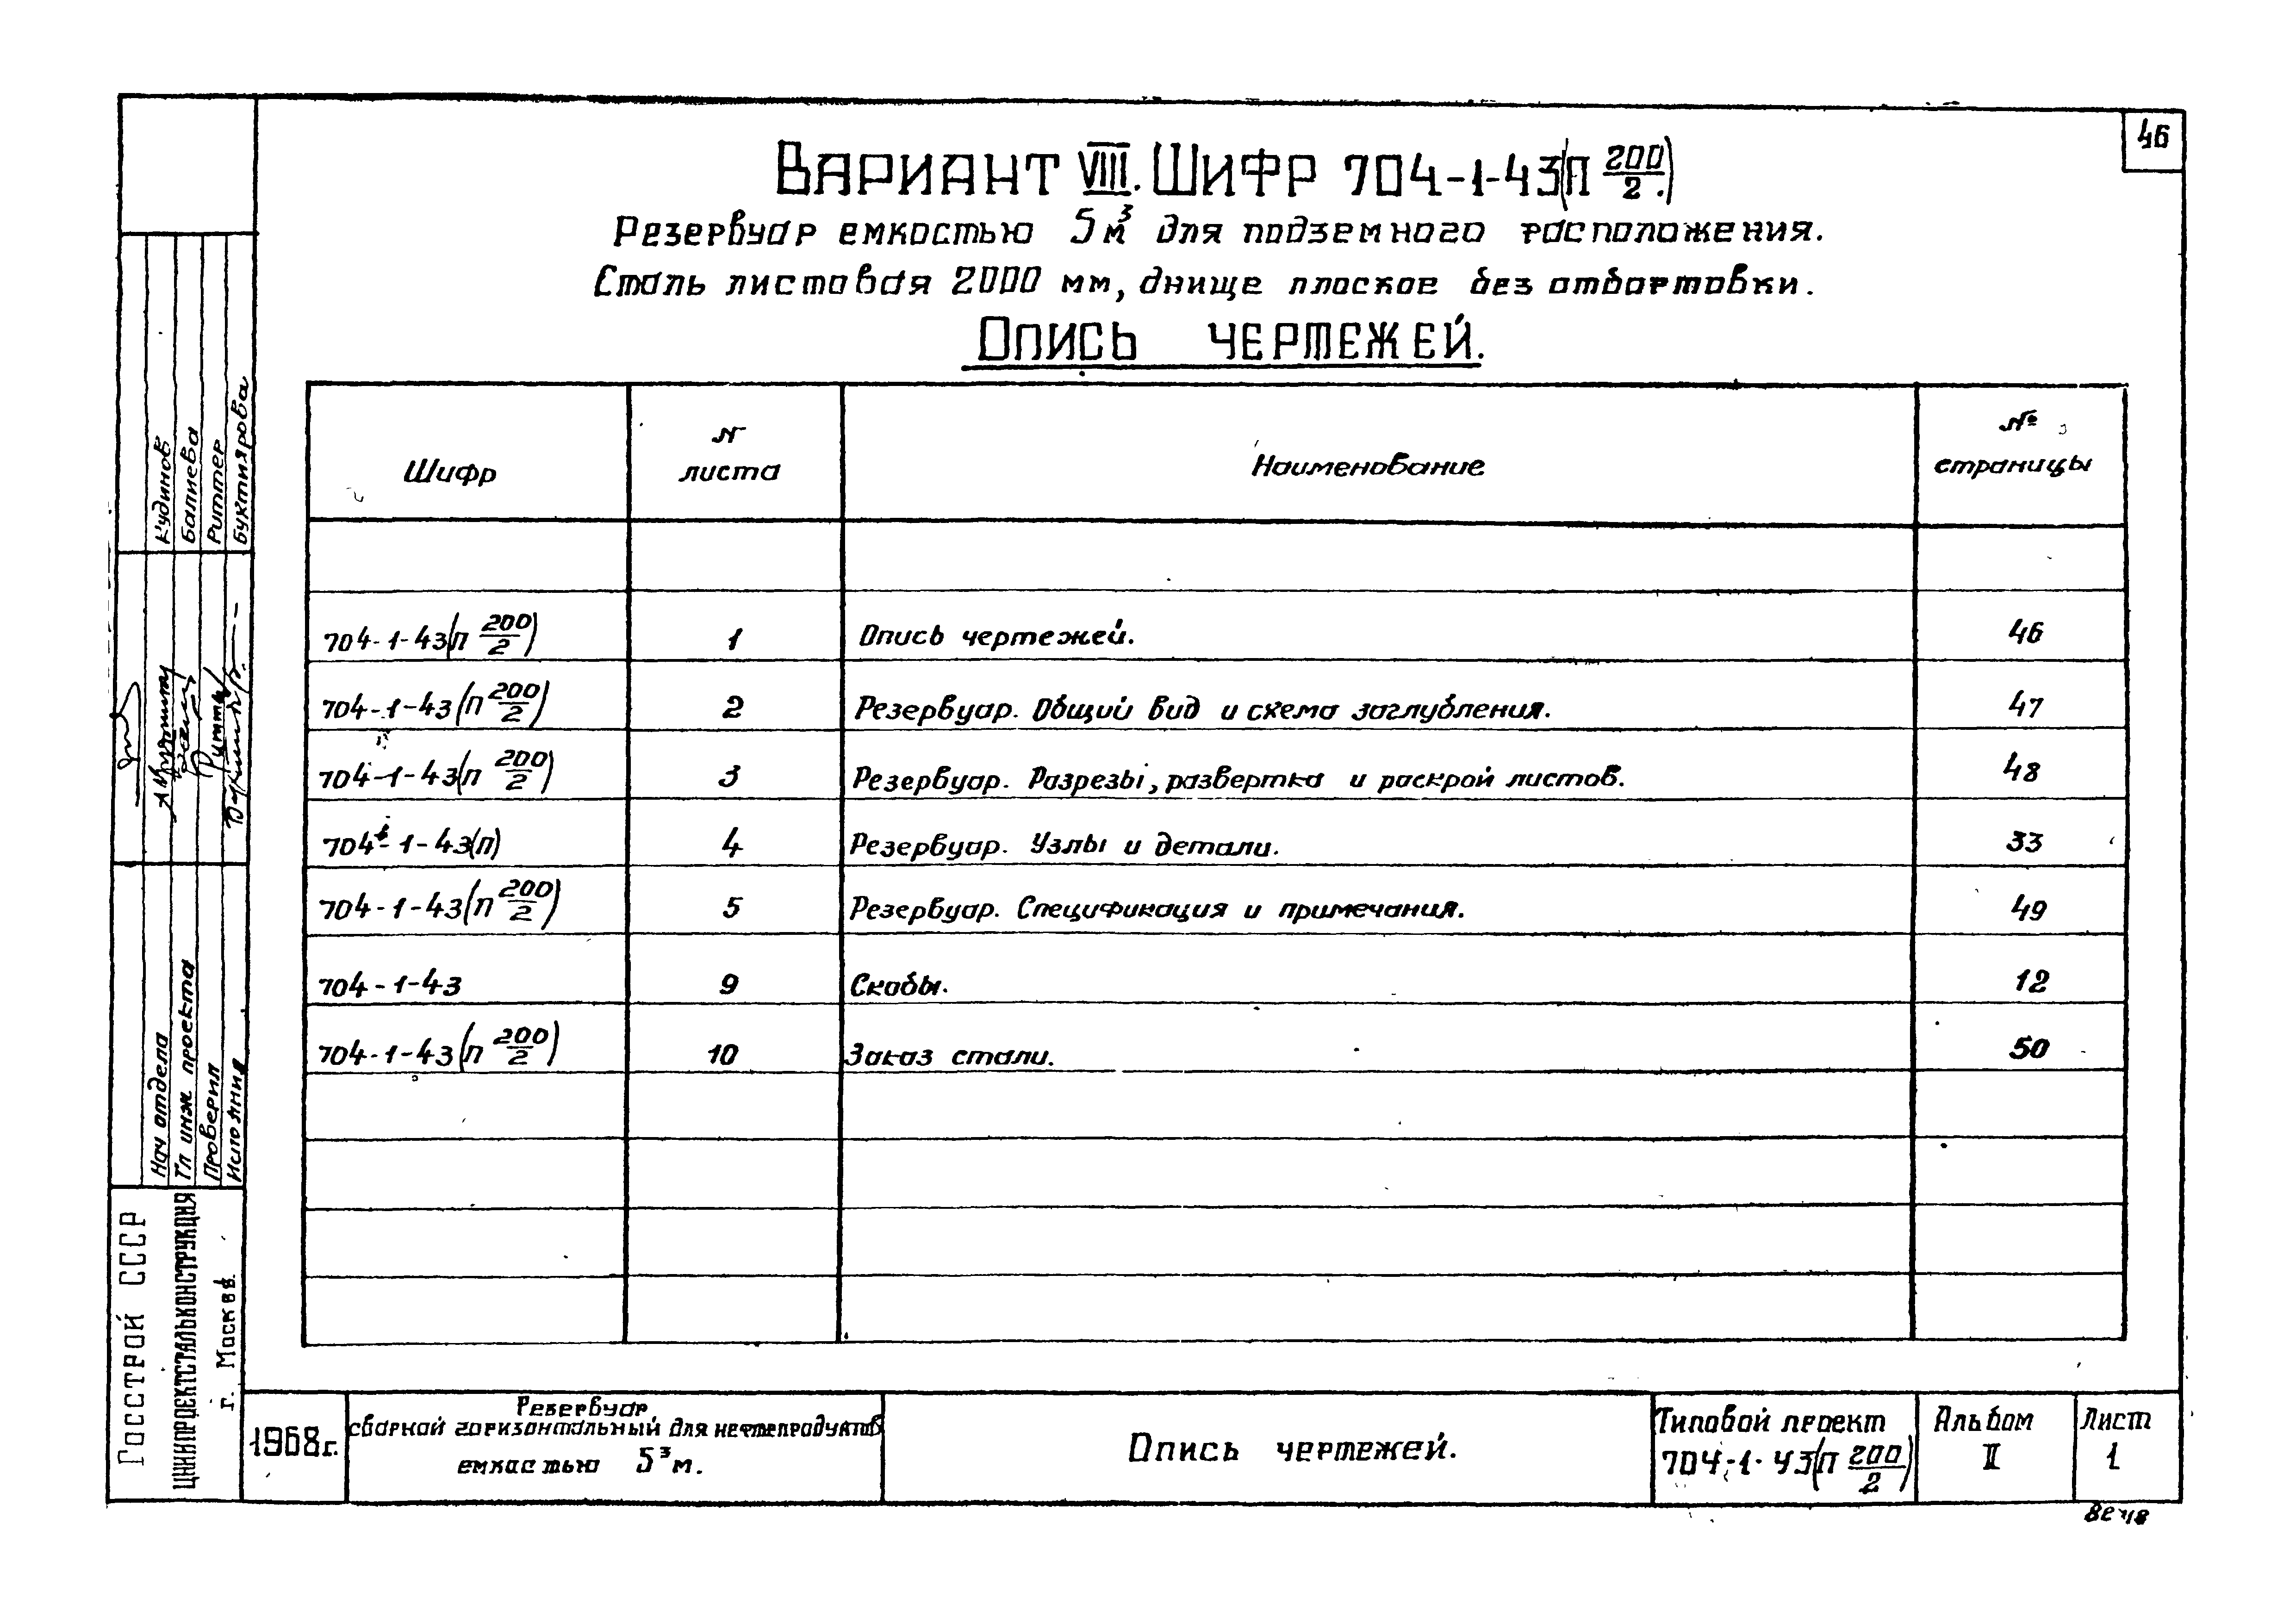 46
ВАРИАНТ VIII. ШИФР 704-1-43(П 200/2.)
Резервуар емкостью 5м³ для подземного расположения.
Сталь листовая 2000 мм, днище плоское без отбортовки.
ОПИСЬ ЧЕРТЕЖЕЙ.
Шифр | N листа | Наименование | № страницы
704-1-43(П 200/2) | 1 | Опись чертежей. | 46
704-1-43(П 200/2) | 2 | Резервуар. Общий вид и схема заглубления. | 47
704-1-43(П 200/2) | 3 | Резервуар. Разрезы, развертка и раскрой листов. | 48
704-1-43(П) | 4 | Резервуар. Узлы и детали. | 33
704-1-43(П 200/2) | 5 | Резервуар. Спецификация и примечания. | 49
704-1-43 | 9 | Скобы. | 12
704-1-43(П 200/2) | 10 | Заказ стали. | 50
Госстрой СССР
ЦНИИПРОЕКТСТАЛЬКОНСТРУКЦИЯ
г. Москва.
Нач отдела Кудинов
Гл инж. проекта Балиева
Проверил Риттер
Исполнил Буктиярова
1968г.
Резервуар
сварной горизонтальный для нефтепродуктов
емкостью 5³м.
Опись чертежей.
Типовой проект
704-1-43(П 200/2)
Альбом
II
Лист
1